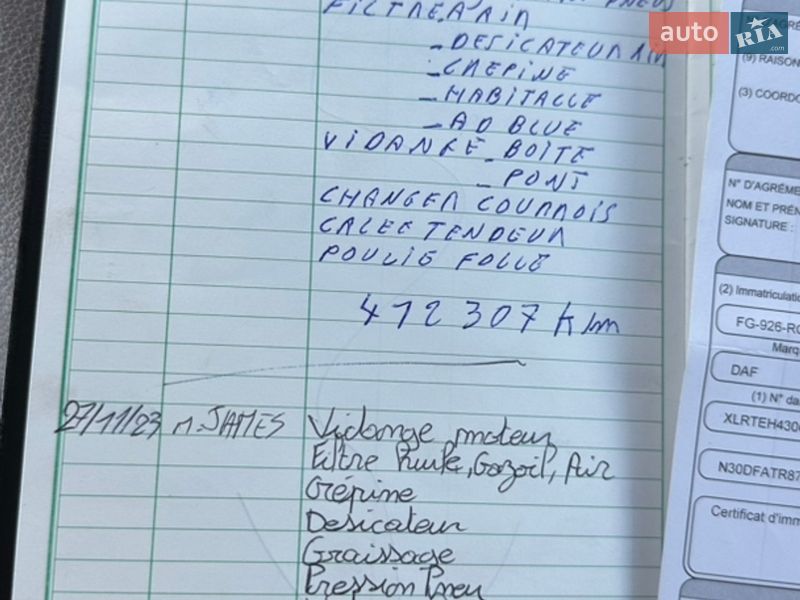 FILTRE A AIR
- DESICATEUR AIR
- CREPINE
- HABITACLE
- AD BLUE
VIDANGE - BOITE
- PONT
CHANGER COURROIS
CALEE TENDEUR
POULIE FOLLE
412307 Km
27/11/23 M. JAMES Vidange moteur
Filtre Huile, Gazoil, Air
Crépine
Desicateur
Graissage
Pression Pneu
auto RIA .com
(9) RAISON
(3) COORDO
N° D'AGRÉME
NOM ET PRÉN
SIGNATURE :
(2) Immatriculatio
FG-926-R
Marq
DAF
(1) N° da
XLRTEH430
N30DFATR87
Certificat d'imm